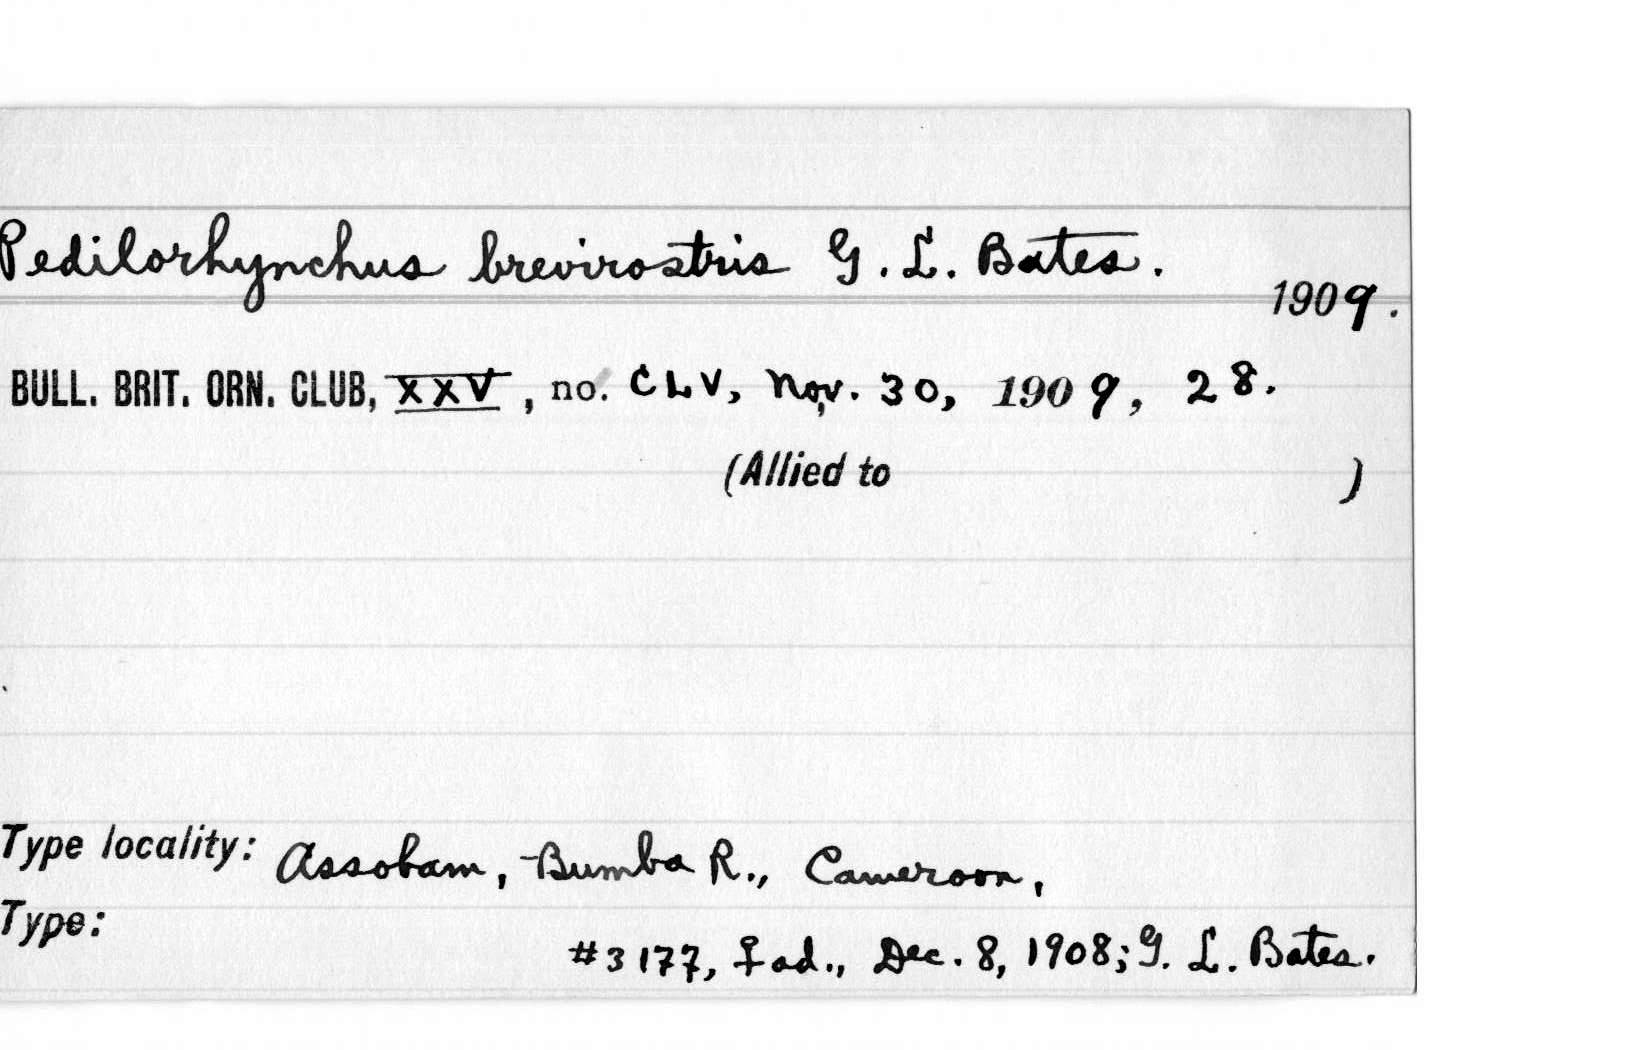 Pedilorhynchus brevirostris G. L. Bates.
1909.
BULL. BRIT. ORN. CLUB, XXV, no. CLV, Nov. 30, 1909, 28.
(Allied to )
Type locality: Assobam, Bumba R., Cameroon,
Type:
#3177, ♀ ad., Dec. 8, 1908; G. L. Bates.